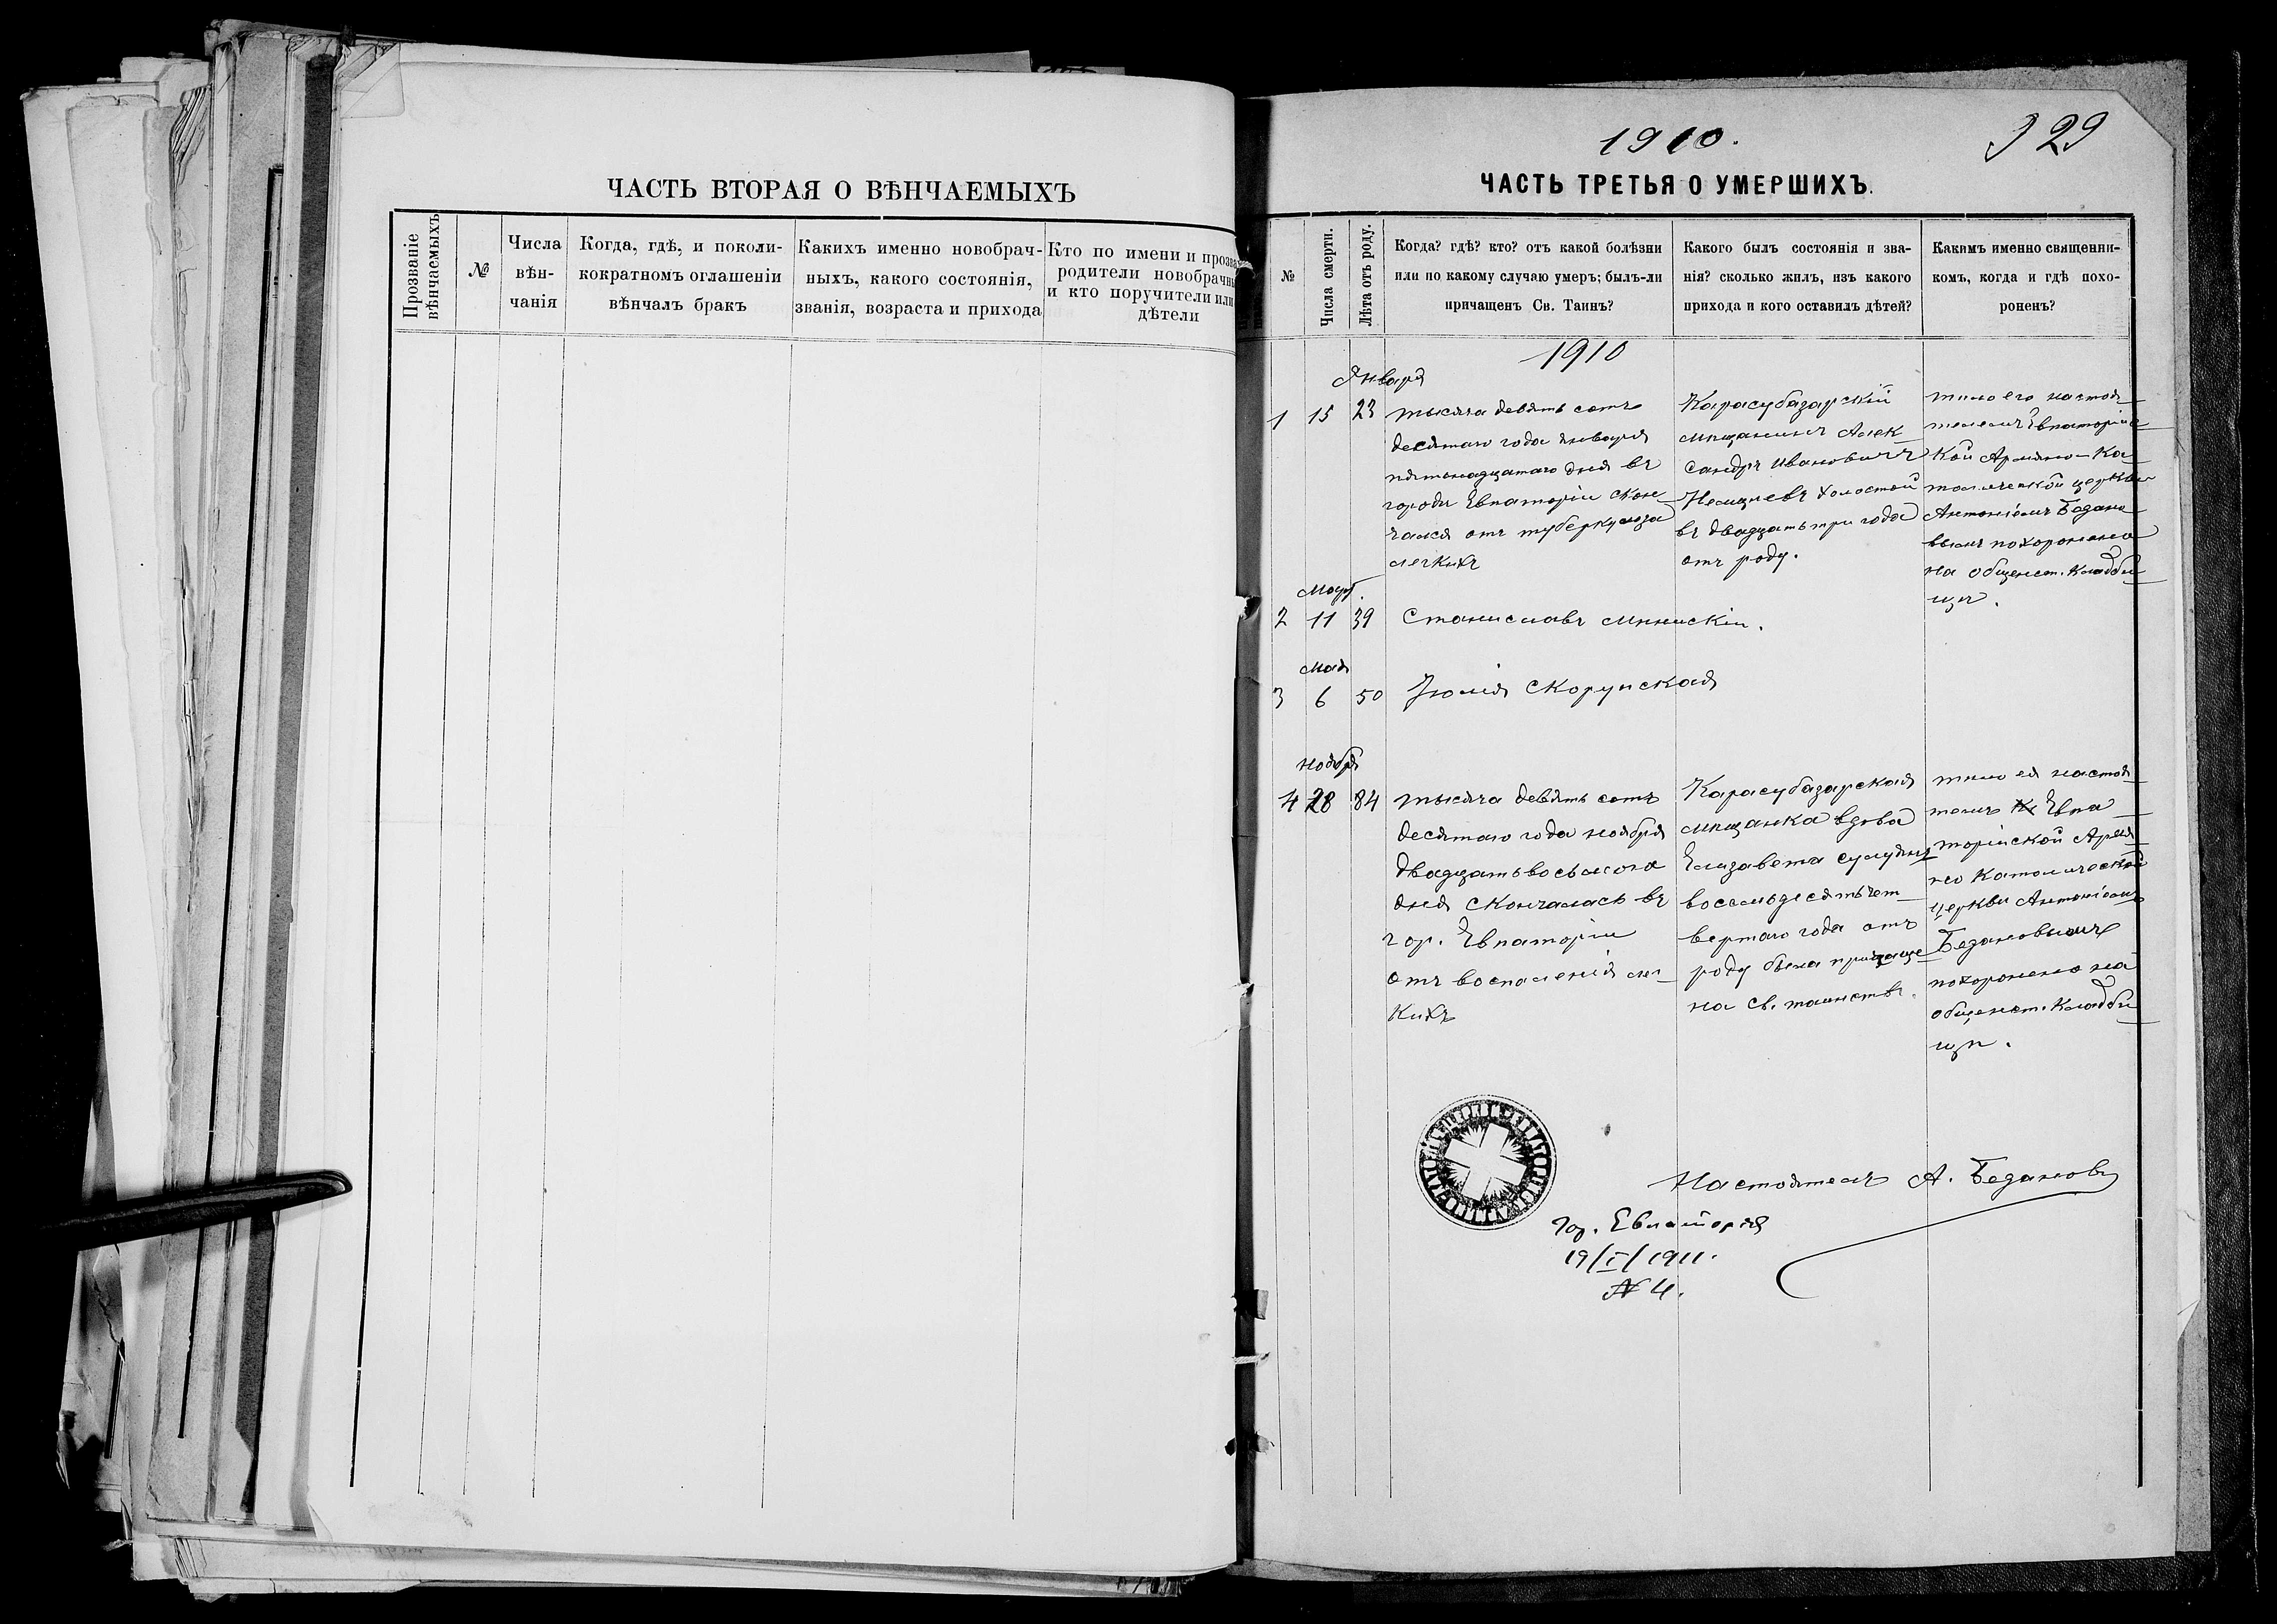 ЧАСТЬ ВТОРАЯ О ВѢНЧАЕМЫХЪ
Прозваніе вѣнчаемыхъ
№
Числа вѣн-
чанія
Когда, гдѣ, и поколи-
кократномъ оглашеніи
вѣнчалъ бракъ
Какихъ именно новобрач-
ныхъ, какого состоянія,
званія, возраста и прихода
Кто по имени и прозва
родители новобрачны
и кто поручители или
дѣтели
1910.
329
ЧАСТЬ ТРЕТЬЯ О УМЕРШИХЪ.
№
Числа смерти.
Лѣта отъ роду.
Когда? гдѣ? кто? отъ какой болѣзни
или по какому случаю умеръ; былъ-ли
причащенъ Св. Таинъ?
Какого былъ состоянія и зва-
нія? сколько жилъ, изъ какого
прихода и кого оставилъ дѣтей?
Какимъ именно священни-
комъ, когда и гдѣ похо-
роненъ?
1910
Января
1 15 23
тысяча девять сотъ
десятаго года января
пятьнадцатаго дня въ
городѣ Евпаторіи скон
чался отъ туберкулоза
легкихъ
Карасубазарскій
мѣщанинъ Алек
сандръ Ивановичъ
холостой
въ двадцать три года
отъ роду.
тѣло его настоя
телемъ Евпаторійс
кой Армяно-Ка
толической церкви
Антоніемъ Бедано
вымъ похоронено
на общенст. кладби
щѣ.
Март.
2 11 39 Станиславъ
Мая
3 6 50 Юлія Скорупская
ноября
4 28 84
тысяча девять сотъ
десятаго года ноября
двадцать восьмого
дня скончалась въ
гор. Евпаторіи
отъ воспаленія лег
кихъ
Карасубазарская
мѣщанка вдова
Елизавета
восемьдесятъ чет
вертаго года отъ
роду была причаще
на св. таинствъ.
тѣло ея настоя
темъ Евпа
торійской Армя
но Католической
церкви Антоніемъ
Бедановымъ
похоронено на
общенст. кладби
щѣ.
Настоятель А. Бедановъ
Гор. Евпаторія
19/I/1911.
№ 4.